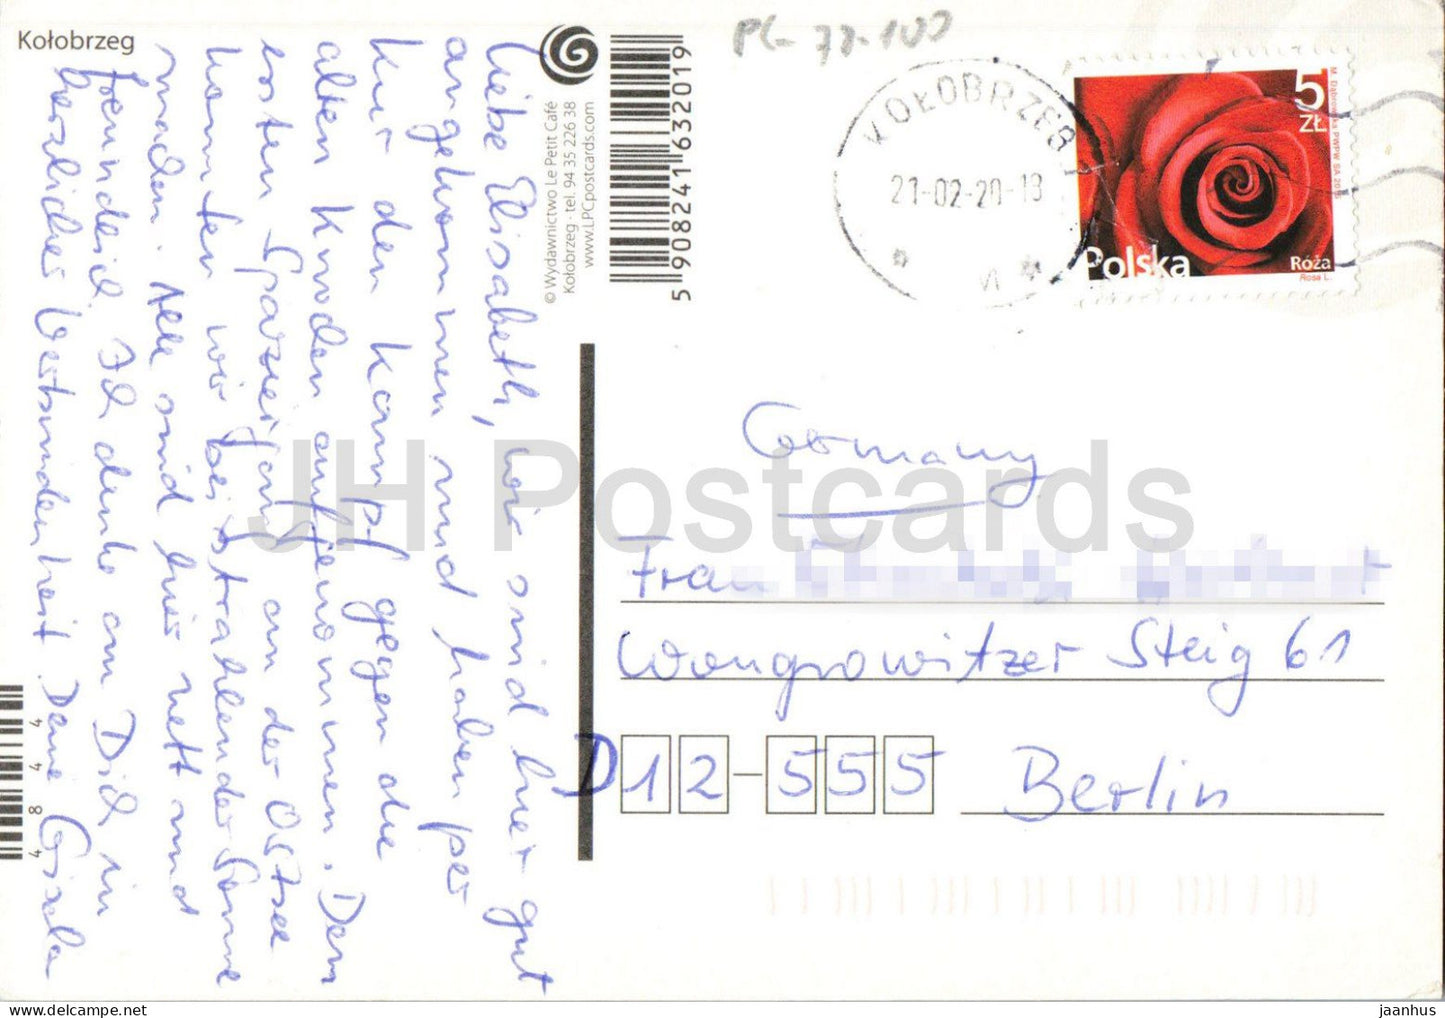 Kołobrzeg
Liebe Elisabeth, wir sind hier gut
angekommen und haben per
Kur den Kampf gegen die
alten Knochen aufgenommen. Den
ersten Spaziergang an der Ostsee
konnten wir bei strahlender Sonne
machen. Alle sind hier nett und
freundlich. Ich denke an Dich in
herzlicher Verbundenheit Deine Gisela
© Wydawnictwo Le Petit Café
Kołobrzeg · tel. 94 35 226 38
www.LPCpostcards.com
5 908241 632019
4 4 8 4
PC- 77-100
KOŁOBRZEG 1
21-02-20-18
5 ZŁ
Polska
Róża
Rosa L.
JH Postcards
Germany
Frau
Wongrowitzer Steig 61
D 12-555 Berlin
jaanhus